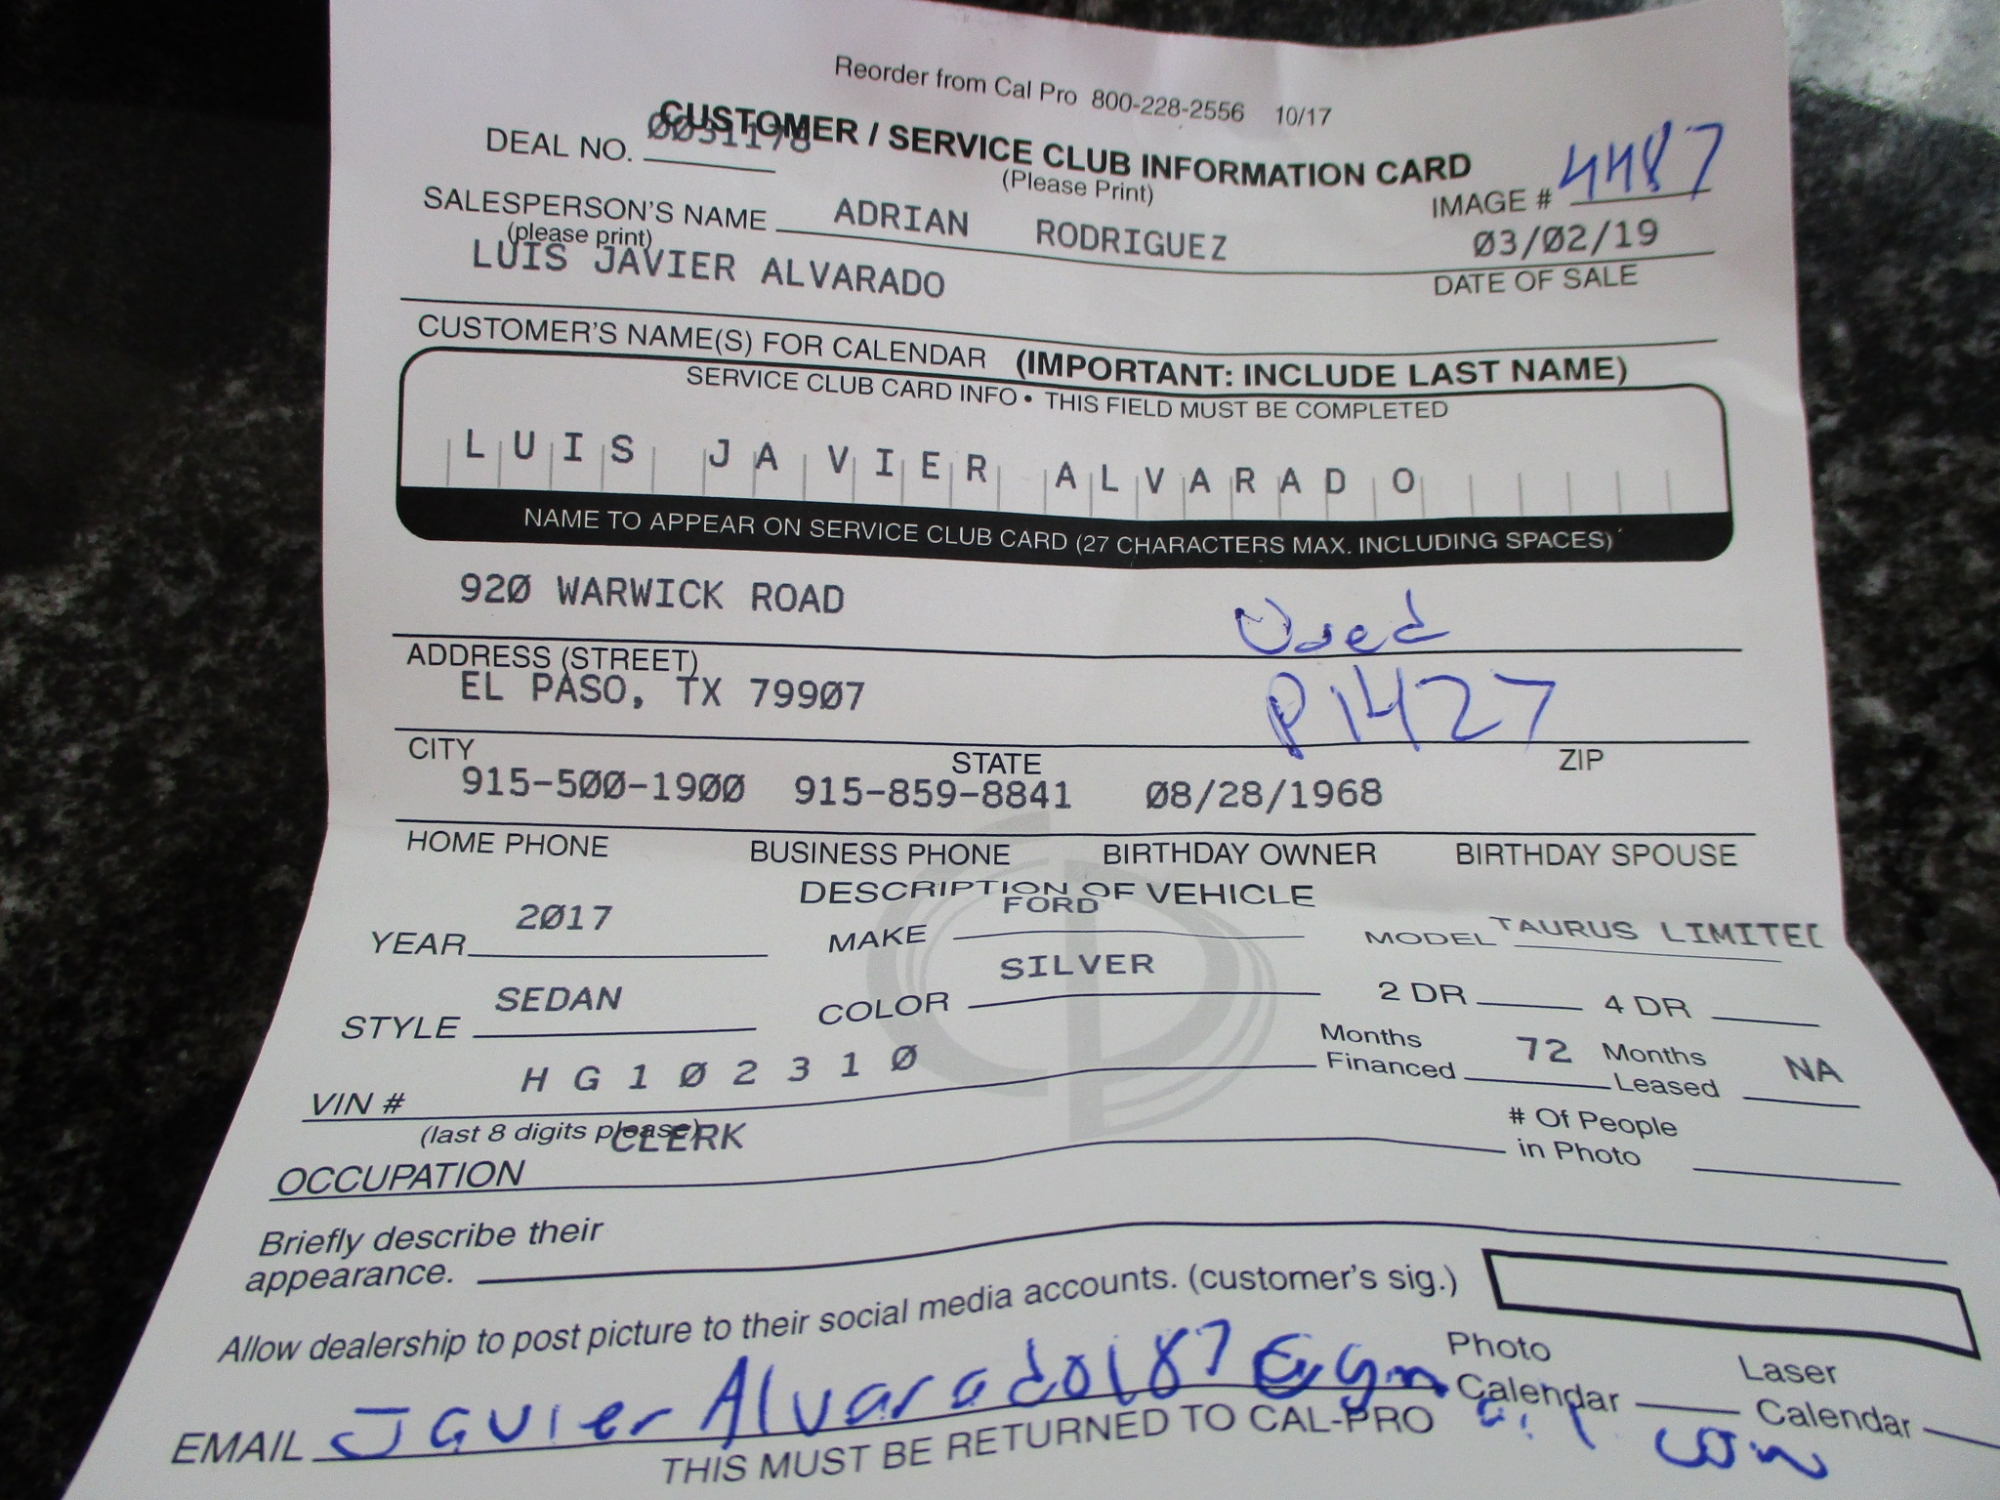 Reorder from Cal Pro 800-228-2556 10/17
CUSTOMER / SERVICE CLUB INFORMATION CARD
(Please Print)
DEAL NO. 0031178
IMAGE # 4487
SALESPERSON'S NAME ADRIAN RODRIGUEZ
(please print)
03/02/19
DATE OF SALE
LUIS JAVIER ALVARADO
CUSTOMER'S NAME(S) FOR CALENDAR (IMPORTANT: INCLUDE LAST NAME)
SERVICE CLUB CARD INFO • THIS FIELD MUST BE COMPLETED
LUIS JAVIER ALVARADO
NAME TO APPEAR ON SERVICE CLUB CARD (27 CHARACTERS MAX. INCLUDING SPACES)
920 WARWICK ROAD Used
ADDRESS (STREET)
EL PASO, TX 79907 P1427
CITY STATE ZIP
915-500-1900 915-859-8841 08/28/1968
HOME PHONE BUSINESS PHONE BIRTHDAY OWNER BIRTHDAY SPOUSE
DESCRIPTION OF VEHICLE
YEAR 2017 MAKE FORD MODEL TAURUS LIMITED
STYLE SEDAN COLOR SILVER 2 DR 4 DR
VIN # HG102310 Months Financed 72 Months Leased NA
(last 8 digits please)
OCCUPATION CLERK # Of People in Photo
Briefly describe their
appearance.
Allow dealership to post picture to their social media accounts. (customer's sig.)
EMAIL JavierAlvarado187@gmail.com
Photo Calendar Laser Calendar
THIS MUST BE RETURNED TO CAL-PRO